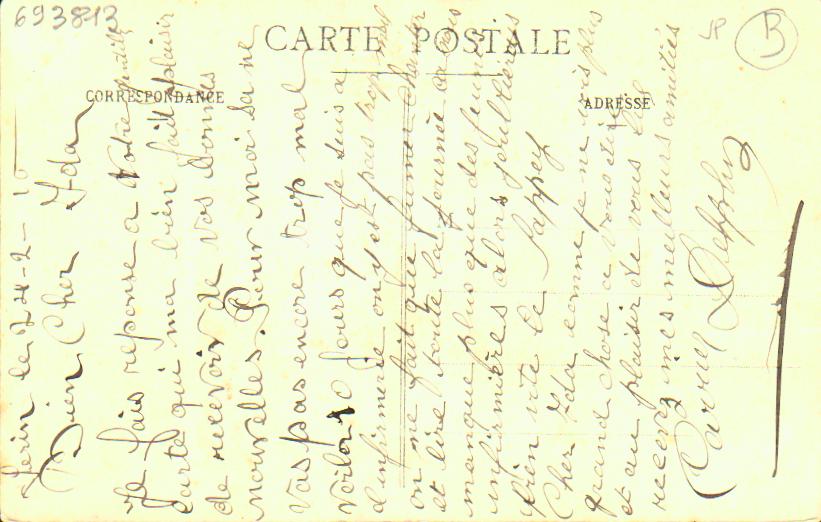 693813
B
CARTE POSTALE
CORRESPONDANCE
ADRESSE
le 24-2-16
Bien Cher Ida
Je fais reponse a votre gentille
carte qui ma bien fait plaisir
de recevoir de vos bonnes
nouvelles. Pour moi sa ne
vas pas encore trop mal
voila 10 jours que je suis a
l'infirmerie on y est pas trop mal
on ne fait que fumer chanter
et lire toute la journée
manque plus que des
infirmières alors
bien vite le
Cher Ida comme je ne vois plus
grand chose a vous dire
et au plaisir de vous lire
recevez mes meilleurs amitiés
Delphin